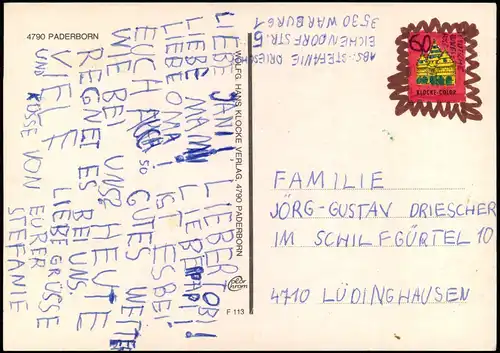 4790 PADERBORN
LIEBE JANI! LIEBER TOBI!
LIEBE MAMI! LIEBER PAPI!
LIEBE OMA! IST ES BEI
EUCH AUCH SO GUTES WETTER
WIE BEI UNS? HEUTE
REGNET ES BEI UNS.
VIELE LIEBE GRÜSSE
UND KÜSSE VON EURER
STEFANIE
WOLFG. HANS KLOCKE VERLAG, 4790 PADERBORN
F 113
ABS. STEFANIE DRIESCHER
EICHENDORFFSTR. 5
3530 WARBURG 1
60
KLOCKE-COLOR
FAMILIE
JÖRG-GUSTAV DRIESCHER
IM SCHILFGÜRTEL 10
4710 LÜDINGHAUSEN